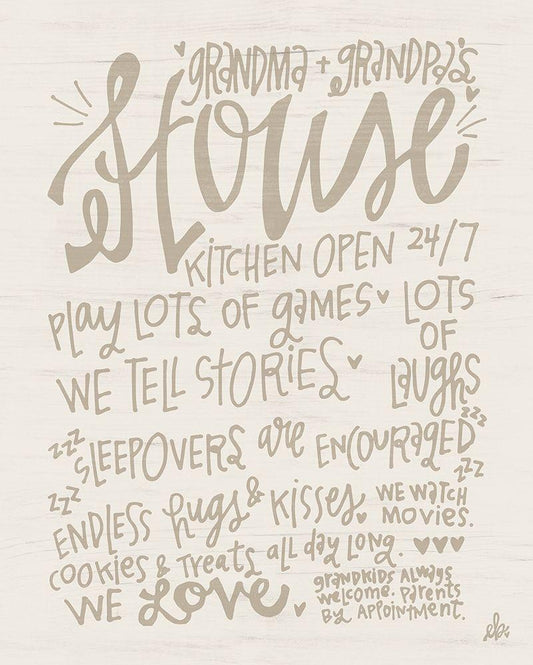 GRANDMA + GRANDPA'S
House
KITCHEN OPEN 24/7
Play LOTS OF GAMES
LOTS
OF
LAUGHS
WE TELL STORIES
zzz SLEEPOVERS are ENCOURAGED zzz
zzz
zzz
ENDLESS hugs & KISSES
WE WATCH
MOVIES.
COOKIES & TREATS all day LONG.
WE Love
GRANDKIDS ALWAYS
WELCOME. PARENTS
BY APPOINTMENT.
eb